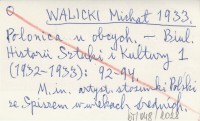 WALICKI Michał 1933.
Polonica u obcych. – Biul.
Historii Sztuki i Kultury 1
(1932-1933): 92-94.
M.in. artyst. stosunki Polski
ze Spiszem w wiekach średnich.